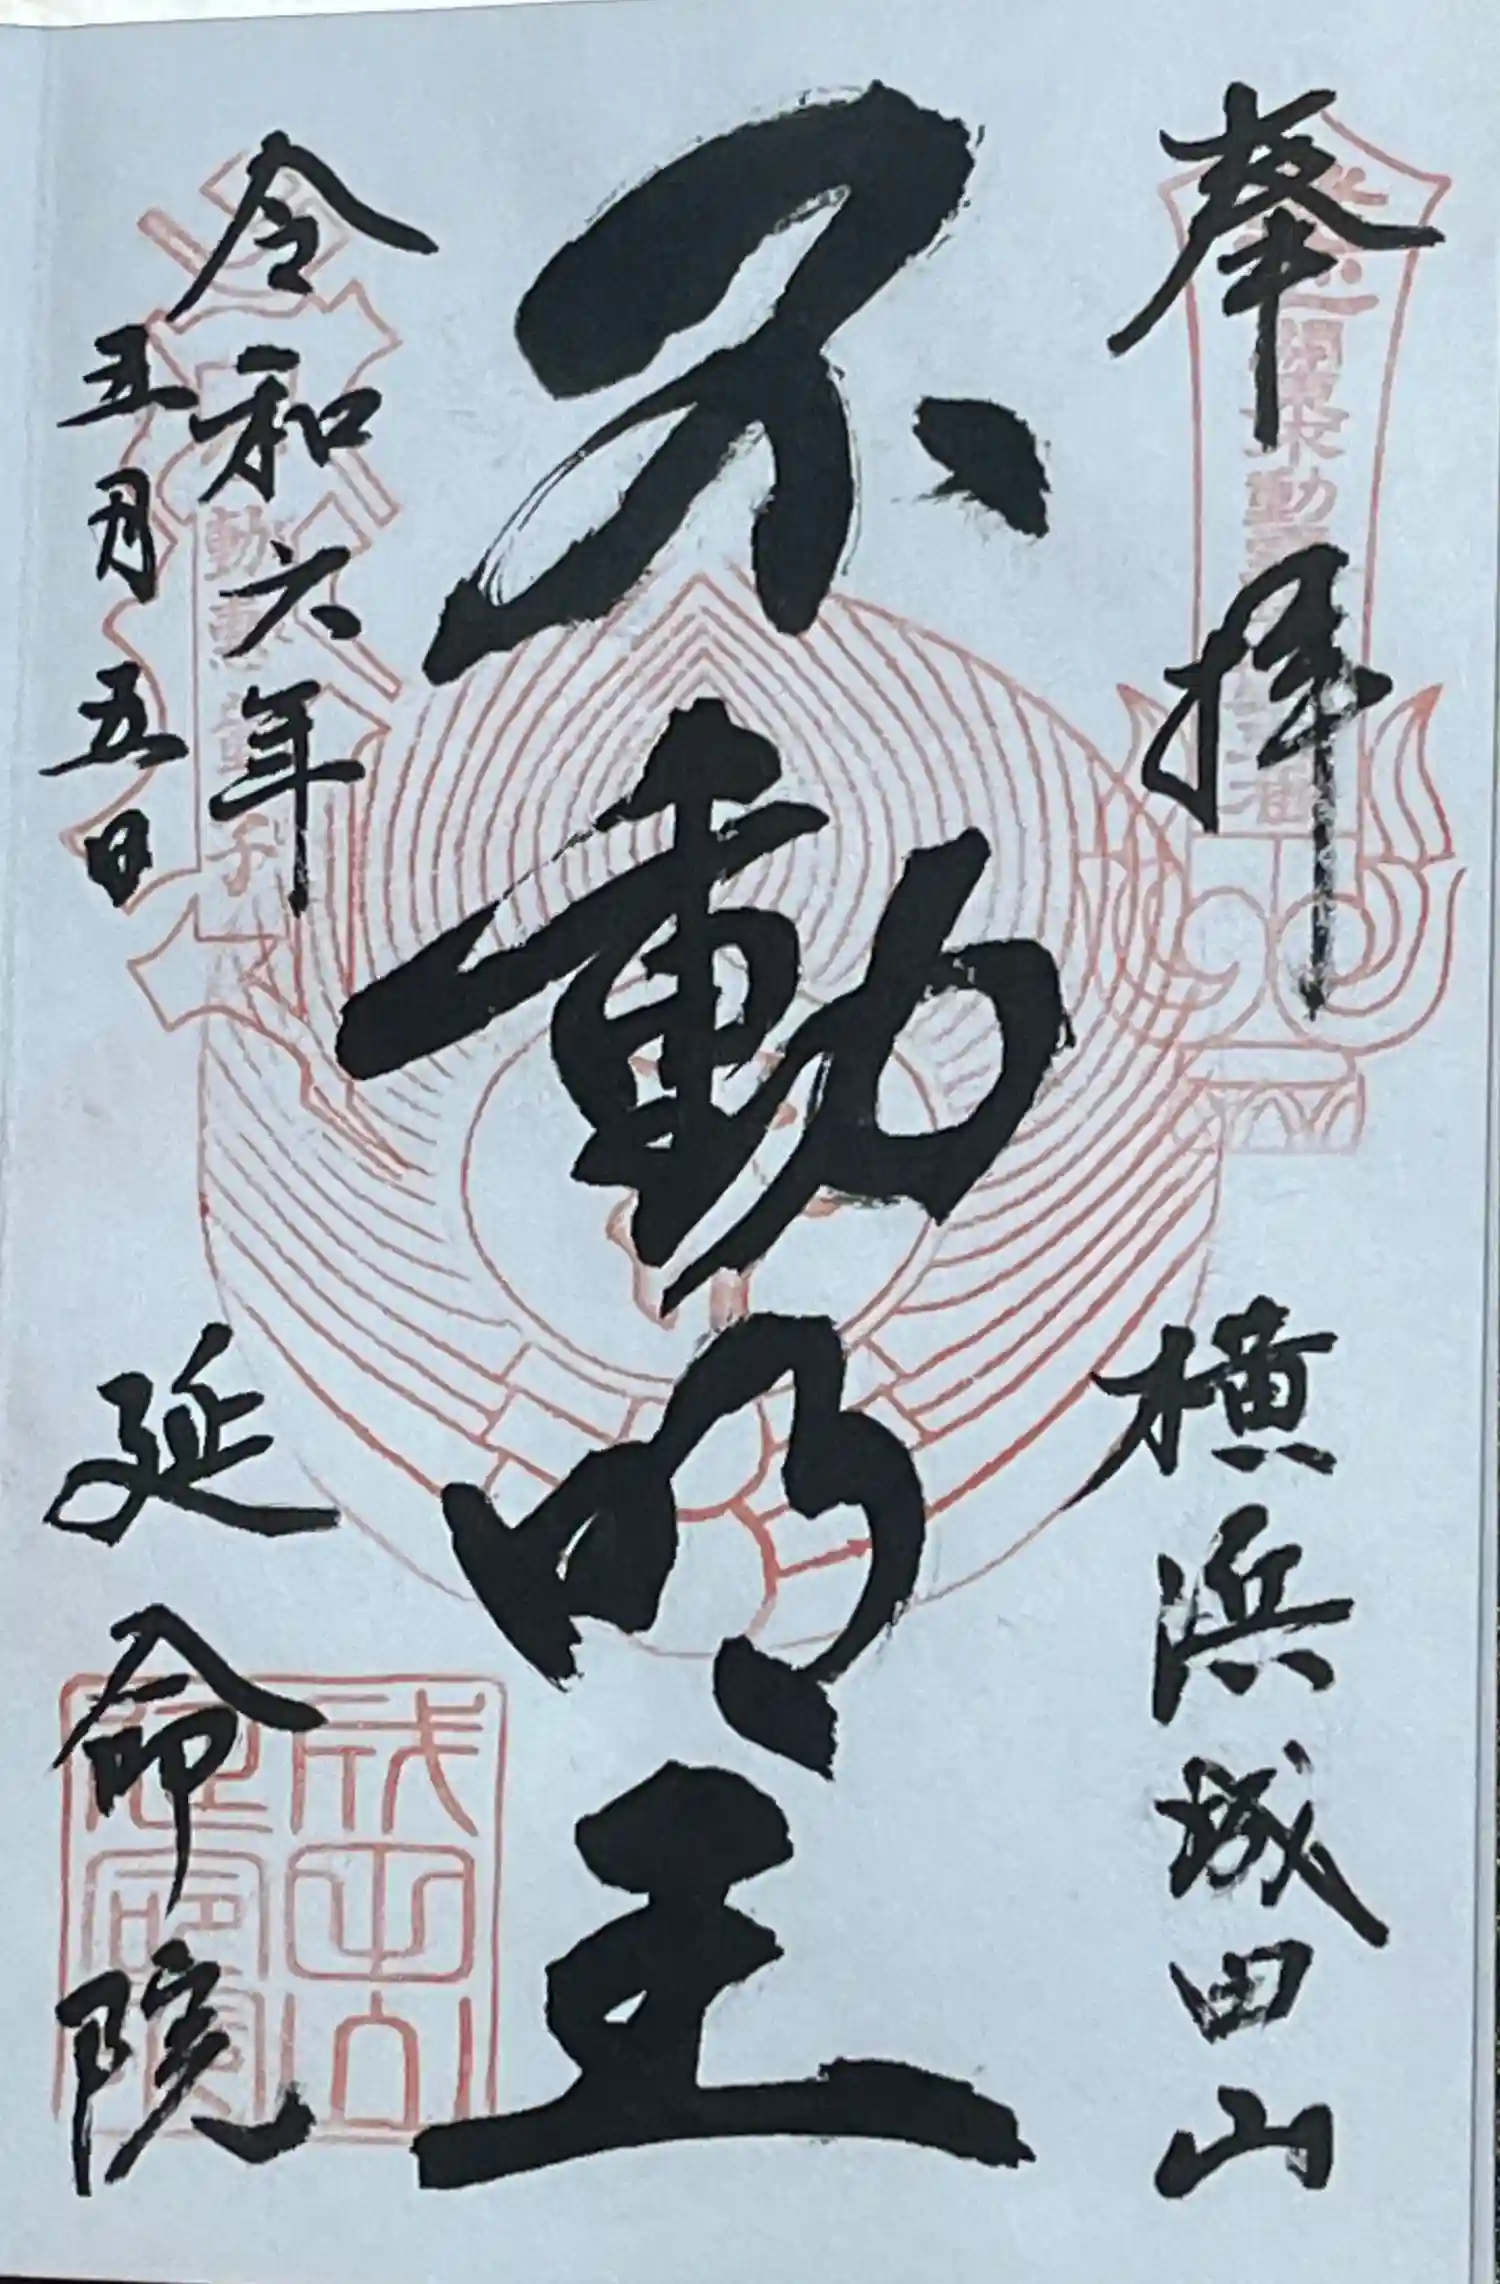 奉拝 横浜成田山
不動明王
令和六年
五月五日
延命院
成田山